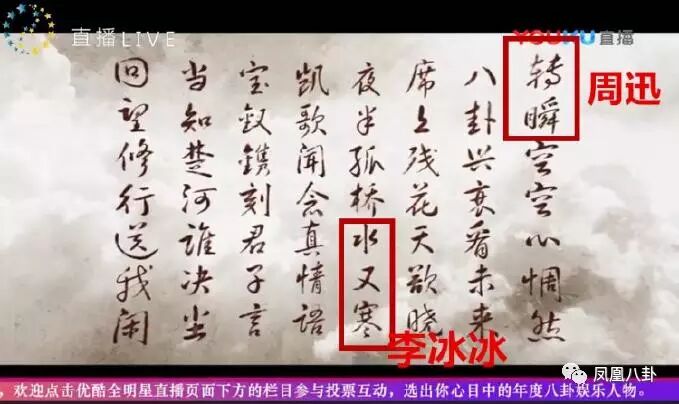 直播LIVE
YOUKU直播
转瞬空空心惆然
八卦兴衰看未来
席上残花天欲晓
夜半孤桥水又寒
凯歌闻念真情语
宝钗镌刻君子言
当知楚河谁决
回望修行送我
周迅
李冰冰
凤凰八卦
,欢迎点击优酷全明星直播页面下方的栏目参与投票互动,选出你心目中的年度八卦娱乐人物。